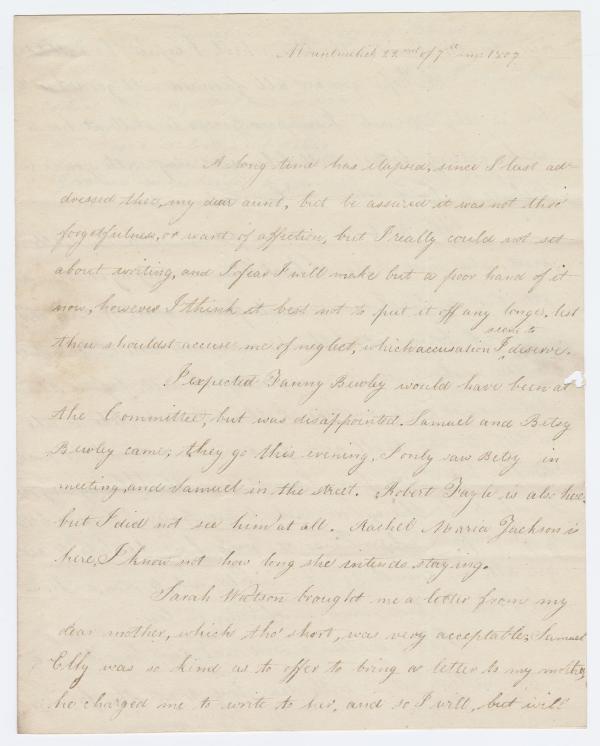 Mountmelick 22nd of 7th mo 1807
A long time has elapsed, since I last ad-
dressed thee, my dear aunt, but be assured it was not thro'
forgetfulness, or want of affection, but I really could not set
about writing, and I fear I will make but a poor hand of it
now, however I think it best not to put it off any longer, lest
seem to
thou shouldst accuse me of neglect, which accusation I deserve.
I expected Fanny Bewley would have been at
the Committee, but was disappointed. Samuel and Betsy
Bewley came, they go this evening, I only saw Betsy in
meeting, and Samuel in the street. Robert Fayle is also here,
but I did not see him at all. Rachel Maria Jackson is
here, I know not how long she intends staying.
Sarah Watson brought me a letter from my
dear mother, which tho' short, was very acceptable; Samuel
Elly was so kind as to offer to bring a letter to my mother,
he charged me to write to her, and so I will, but will